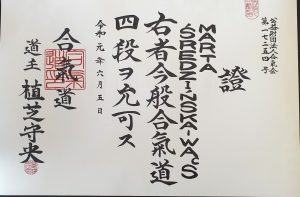 公益財団法人合氣会
第一七二五四号
證
MARTA
ŚREDZIŃSKA-WĄS
右者今般合氣道
四段ヲ允可ス
令和元年六月五日
合氣道
道主 植芝守央